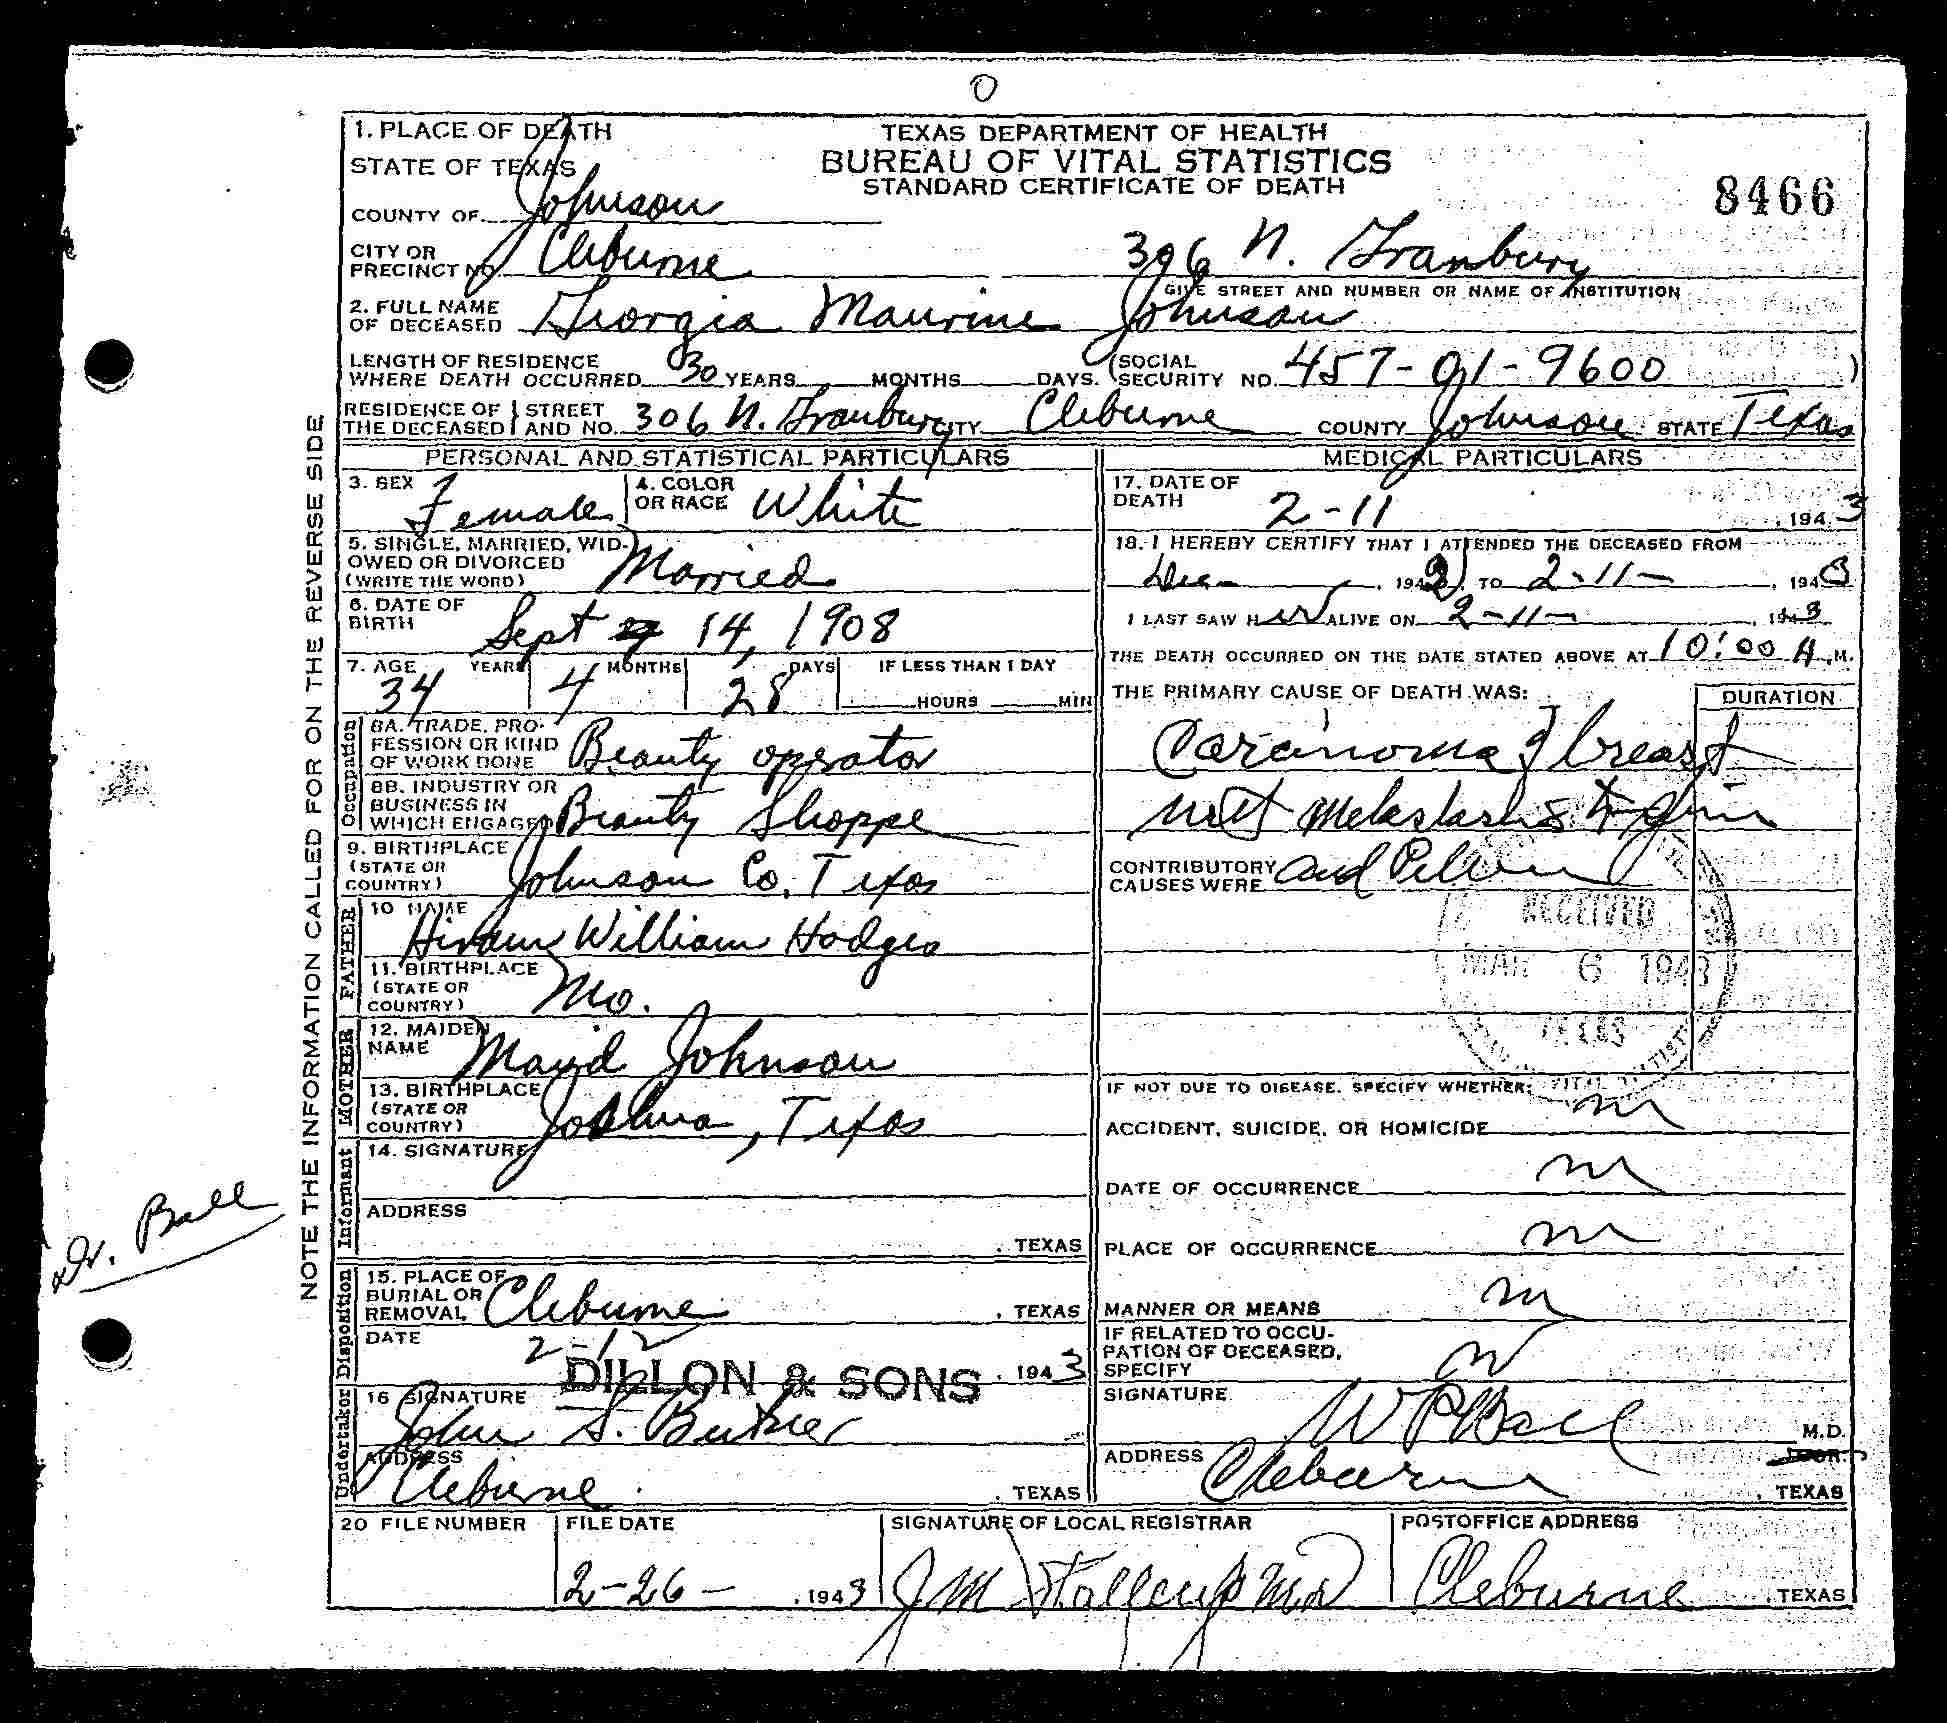 O
1. PLACE OF DEATH
STATE OF TEXAS
COUNTY OF Johnson
CITY OR PRECINCT NO. Cleburne
TEXAS DEPARTMENT OF HEALTH
BUREAU OF VITAL STATISTICS
STANDARD CERTIFICATE OF DEATH
8466
306 N. Granbury
GIVE STREET AND NUMBER OR NAME OF INSTITUTION
2. FULL NAME OF DECEASED Georgia Maurine Johnson
LENGTH OF RESIDENCE WHERE DEATH OCCURRED 30 YEARS MONTHS DAYS. (SOCIAL SECURITY NO. 457-01-9600 )
RESIDENCE OF THE DECEASED STREET AND NO. 306 N. Granbury CITY Cleburne COUNTY Johnson STATE Texas
PERSONAL AND STATISTICAL PARTICULARS
3. SEX Female 4. COLOR OR RACE White
5. SINGLE, MARRIED, WIDOWED OR DIVORCED (WRITE THE WORD) Married
6. DATE OF BIRTH Sept 14, 1908
7. AGE 34 YEARS 4 MONTHS 28 DAYS IF LESS THAN 1 DAY HOURS MIN
Occupation
8A. TRADE, PROFESSION OR KIND OF WORK DONE Beauty operator
8B. INDUSTRY OR BUSINESS IN WHICH ENGAGED Beauty Shoppe
9. BIRTHPLACE (STATE OR COUNTRY) Johnson Co. Texas
FATHER
10 NAME Hiram William Hodges
11. BIRTHPLACE (STATE OR COUNTRY) Mo.
MOTHER
12. MAIDEN NAME Maud Johnson
13. BIRTHPLACE (STATE OR COUNTRY) Joshua, Texas
Informant
14. SIGNATURE
ADDRESS , TEXAS
Disposition
15. PLACE OF BURIAL OR REMOVAL Cleburne , TEXAS
DATE 2-12 , 1943
DILLON & SONS
Undertaker
16 SIGNATURE John S.
ADDRESS Cleburne , TEXAS
MEDICAL PARTICULARS
17. DATE OF DEATH 2-11 , 1943
18. I HEREBY CERTIFY THAT I ATTENDED THE DECEASED FROM
Dec , 1942 TO 2-11- , 1943
I LAST SAW HER ALIVE ON 2-11- 1943
THE DEATH OCCURRED ON THE DATE STATED ABOVE AT 10:00 A.M.
THE PRIMARY CAUSE OF DEATH WAS: DURATION
Carcinoma of breast
with Metastasis to Spine
CONTRIBUTORY CAUSES WERE and Pelvis
RECEIVED
MAR 6 1943
TEXAS
IF NOT DUE TO DISEASE, SPECIFY WHETHER:
ACCIDENT, SUICIDE, OR HOMICIDE
DATE OF OCCURRENCE
PLACE OF OCCURRENCE
MANNER OR MEANS
IF RELATED TO OCCUPATION OF DECEASED, SPECIFY
SIGNATURE W P Ball M.D.
ADDRESS Cleburne , TEXAS
20 FILE NUMBER FILE DATE 2-26- , 1943
SIGNATURE OF LOCAL REGISTRAR J M Stallcup MD
POSTOFFICE ADDRESS Cleburne , TEXAS
NOTE THE INFORMATION CALLED FOR ON THE REVERSE SIDE
Dr. Ball